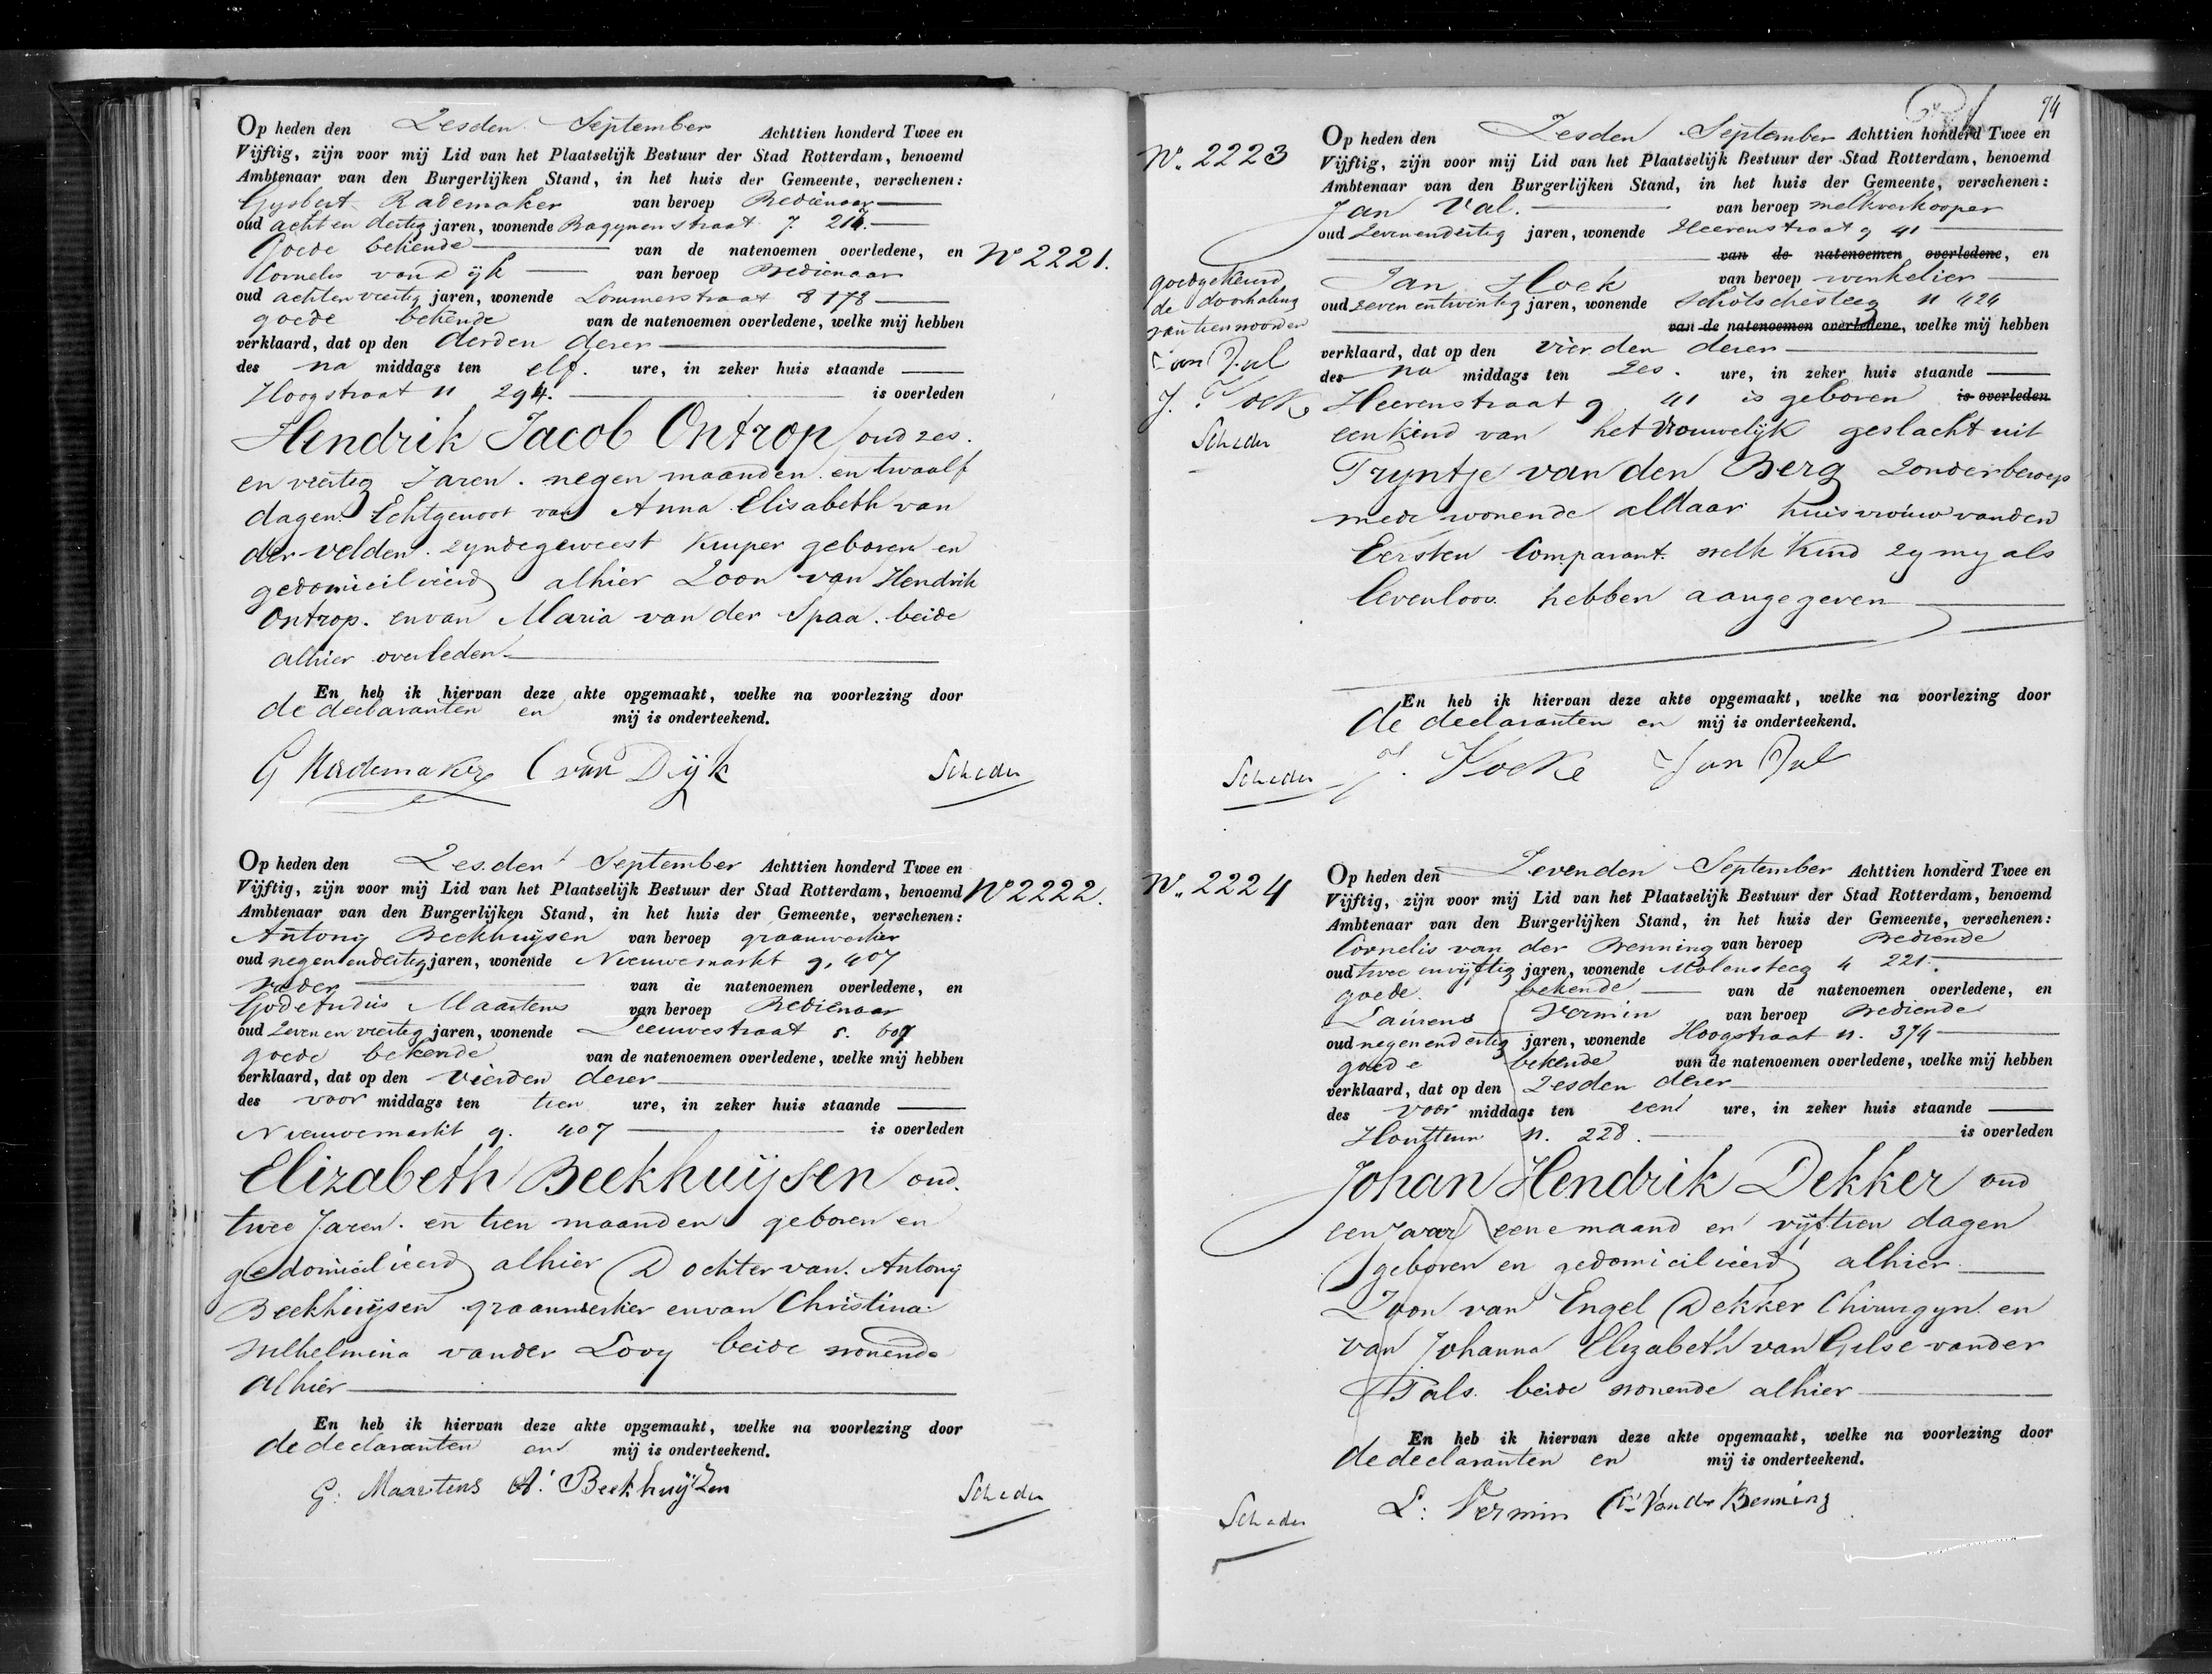 Op heden den Zesden September Achttien honderd Twee en
Vijftig, zijn voor mij Lid van het Plaatselijk Bestuur der Stad Rotterdam, benoemd
Ambtenaar van den Burgerlijken Stand, in het huis der Gemeente, verschenen:
Gysbert Rademaker van beroep Bedienaar
oud acht en dertig jaren, wonende Bagynenstraat 7. 217.
Goede bekende van de natenoemen overledene, en
No 2221.
Cornelis van Dijk van beroep Bedienaar
oud achtenveertig jaren, wonende Lommerstraat 8 178
goede bekende van de natenoemen overledene, welke mij hebben
verklaard, dat op den derden dezer
des na middags ten elf. ure, in zeker huis staande
Hoogstraat 11 294. is overleden
Hendrik Jacob Ontrop oud zes.
en veertig Jaren. negen maanden en twaalf
dagen. Echtgenoot van Anna Elisabeth van
der velden. zyndegeweest Kuiper geboren en
gedomicilieerd alhier Zoon van Hendrik
Ontrop. en van Maria van der Spaa. beide
alhier overleden
En heb ik hiervan deze akte opgemaakt, welke na voorlezing door
de declaranten en mij is onderteekend.
G Rademaker C van Dijk Scheder
Op heden den Zesden September Achttien honderd Twee en
Vijftig, zijn voor mij Lid van het Plaatselijk Bestuur der Stad Rotterdam, benoemd
No 2222.
Ambtenaar van den Burgerlijken Stand, in het huis der Gemeente, verschenen:
Antony Beekhuijsen van beroep graanwerker
oud negenendertig jaren, wonende Nieuwemarkt g. 407
vader van de natenoemen overledene, en
Godefridus Maartens van beroep Bedienaar
oud Zeven en veertig jaren, wonende Leeuwestraat s. 607
goede bekende van de natenoemen overledene, welke mij hebben
verklaard, dat op den vierden dezer
des voor middags ten tien ure, in zeker huis staande
Nieuwemarkt g. 407 is overleden
Elizabeth Beekhuijsen oud.
twee Jaren. en tien maanden geboren en
gedomicilieerd alhier Dochter van. Antony
Beekhuijsen graanwerker en van Christina
Wilhelmina vander Looy beide wonende
alhier
En heb ik hiervan deze akte opgemaakt, welke na voorlezing door
de declaranten en mij is onderteekend.
G: Maartens A: Beekhuijzen Scheder
94
No. 2223
Op heden den Zesden September Achttien honderd Twee en
Vijftig, zijn voor mij Lid van het Plaatselijk Bestuur der Stad Rotterdam, benoemd
Ambtenaar van den Burgerlijken Stand, in het huis der Gemeente, verschenen:
Jan Val. van beroep melkverkooper
oud Zevenendertig jaren, wonende Heerenstraat g 41
van de natenoemen overledene, en
Jan Hoek van beroep winkelier
oud zeven entwintig jaren, wonende Schotschesteeg 11 424
van de natenoemen overledene, welke mij hebben
verklaard, dat op den vierden dezer
des na middags ten Zes. ure, in zeker huis staande
Heerenstraat g 41 is geboren is overleden
een kind van het vrouwelijk geslacht uit
Tryntje van den Berg Zonder beroep
mede wonende aldaar huisvrouw vanden
Eersten Comparant. welk Kind zy my als
levenloos. hebben aangegeven
goedgekeurd
de doorhaling
van tien woorden
Jan Val
J. Hoeke
Scheder
En heb ik hiervan deze akte opgemaakt, welke na voorlezing door
de declaranten en mij is onderteekend.
Scheder J. Hoeke Jan Val
No. 2224
Op heden den Zevenden September Achttien honderd Twee en
Vijftig, zijn voor mij Lid van het Plaatselijk Bestuur der Stad Rotterdam, benoemd
Ambtenaar van den Burgerlijken Stand, in het huis der Gemeente, verschenen:
Cornelis van der Brenning van beroep Bediende
oud twee envijftig jaren, wonende Molensteeg 4 221.
goede bekende van de natenoemen overledene, en
Laurens Vermin van beroep Bediende
oud negenendertig jaren, wonende Hoogstraat 11. 374
goede bekende van de natenoemen overledene, welke mij hebben
verklaard, dat op den Zesden dezer
des voor middags ten een ure, in zeker huis staande
Houttuin 11. 228. is overleden
Johan Hendrik Dekker oud
een Jaar eene maand en vijftien dagen
geboren en gedomicilieerd alhier
Zoon van Engel Dekker Chirurgyn. en
van Johanna Elizabeth van Gelse vander
Pals. beide wonende alhier
En heb ik hiervan deze akte opgemaakt, welke na voorlezing door
de declaranten en mij is onderteekend.
Scheder L: Vermin C: Van der Benning